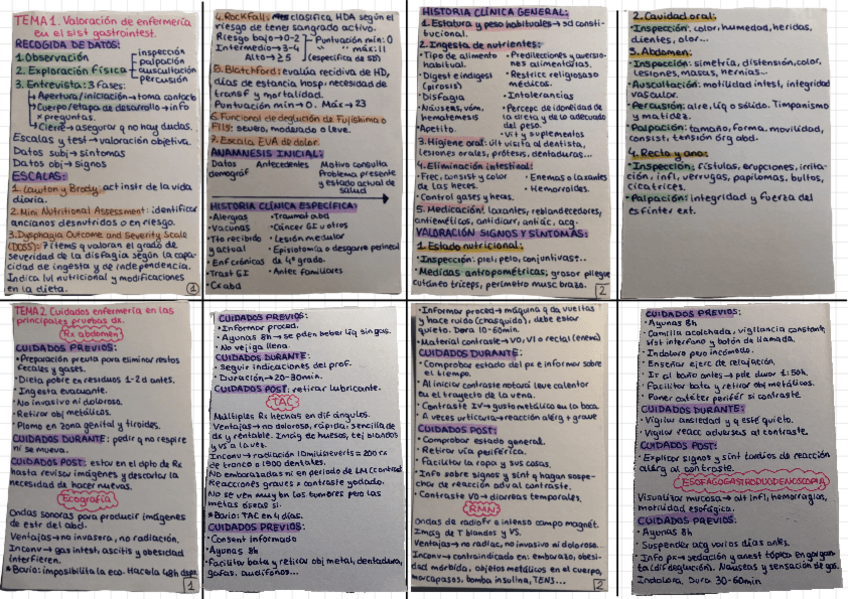 TEMA 1. Valoración de enfermería
en el sist gastrointest.
RECOGIDA DE DATOS:
1. Observación
2. Exploración física
inspección
palpación
auscultación
percusión
3. Entrevista: 3 fases:
Apertura/iniciación → toma contacto
Cuerpo/etapa de desarrollo → info
x preguntas.
Cierre → asegurar q no hay dudas.
Escalas y test → valoración objetiva.
Datos subj → síntomas
Datos obj → signos
ESCALAS:
1. Lawton y Brody: act instr de la vida
diaria.
2. Mini Nutritional Assessment: identificar
ancianos desnutridos o en riesgo.
3. Dysphagia Outcome and Severity Scale
(DOSS): 7 ítems q valoran el grado de
severidad de la disfagia según la capa-
cidad de ingesta y de independencia.
Indica lvl nutricional y modificaciones
en la dieta.
1
4. Rockfall: clasifica HDA según el
riesgo de tener sangrado activo.
Riesgo bajo → 0-2
Intermedio → 3-4
Alto → ≥ 5
Puntuación mín: 0
" máx: 11
(específica de SD)
5. Blatchford: evalúa recidiva de HD,
días de estancia hosp, necesidad de
transf y mortalidad.
Puntuación mín → 0. Máx → 23
6. Funcional de deglución de Fujishima o
FILS: severo, moderado o leve.
7. Escala EVA de dolor.
ANAMNESIS INICIAL:
Datos
demográf
Antecedentes
Motivo consulta
Problema presente
y estado actual de
salud
HISTORIA CLÍNICA ESPECÍFICA:
• Alergias
• Vacunas
• Tto recibido
y actual
• Enf crónicas
• Trast GI
• Cx abd
• Traumat abd
• Cáncer GI u otros
• Lesión medular
• Episiotomía o desgarro perineal
de 4º grado.
• Antec familiares
HISTORIA CLÍNICA GENERAL:
1. Estatura y peso habituales → sd consti-
tucional.
2. Ingesta de nutrientes:
• Tipo de alimento
habitual.
• Digest e indigest
(pirosis)
• Disfagia
• Náuseas, vóm,
hematemesis
• Apetito.
• Predilecciones y aversio-
nes alimentarias.
• Restricc religiosas o
médicas.
• Intolerancias
• Percepc de idoneidad de
la dieta y de lo adecuado
del peso.
• Vit y suplementos
3. Higiene oral: últ visita al dentista,
lesiones orales, prótesis, dentaduras...
4. Eliminación intestinal:
• Frec, consist y color
de las heces.
• Control gases y heces.
• Enemas o laxantes
• Hemorroides.
5. Medicación: laxantes, reblandecedores,
antieméticos, antidiarr, antiác, acg.
VALORACIÓN SIGNOS Y SÍNTOMAS:
1. Estado nutricional:
• Inspección: piel, pelo, conjuntivas...
• Medidas antropométricas, grosor pliegue
cutáneo tríceps, perímetro musc brazo.
2
2. Cavidad oral:
• Inspección: color, humedad, heridas,
dientes, olor...
3. Abdomen:
• Inspección: simetría, distensión, color,
lesiones, masas, hernias...
• Auscultación: motilidad intest, integridad
vascular.
• Percusión: aire, líq o sólido. Timpanismo
y matidez.
• Palpación: tamaño, forma, movilidad,
consist, tensión órg abd.
4. Recto y ano:
• Inspección: fístulas, erupciones, irrita-
ción, infl, verrugas, papilomas, bultos,
cicatrices.
• Palpación: integridad y fuerza del
esfínter ext.
TEMA 2. Cuidados enfermería en las
principales pruebas dx.
Rx abdomen
CUIDADOS PREVIOS:
• Preparación previa para eliminar restos
fecales y gases.
• Dieta pobre en residuos 1-2 d antes.
• Ingesta evacuante.
• No invasivo ni doloroso.
• Retirar obj metálicos.
• Plomo en zona genital y tiroides.
CUIDADOS DURANTE: pedir q no respire
ni se mueva.
CUIDADOS POST: estar en el dpto de Rx
hasta revisar imágenes y descartar la
necesidad de hacer nuevas.
Ecografía
Ondas sonoras para producir imágenes
de estr del abd.
Ventajas → no invasora, no radiación.
Inconv → gas intest, ascitis y obesidad
interfieren.
* Bario: imposibilita la eco. Hacerla 48h
1
CUIDADOS PREVIOS:
• Informar proced.
• Ayunas 8h → se pden beber líq sin gas.
• No vejiga llena.
CUIDADOS DURANTE:
• seguir indicaciones del prof.
• Duración → 20-30min.
CUIDADOS POST: retirar lubricante.
TAC
Múltiples Rx hechas en dif ángulos.
Ventajas → no dolorosa, rápida, sencilla de
dx y rentable. Imág de huesos, tej blandos
y vs a la vez.
Inconv → radiación 10milisieverts = 200 rx
de tronco o 1900 dentales.
No embarazadas ni en periodo de LM (contrast).
Reacciones graves x contraste yodado.
No se ven muy bn los tumores pero las
metas óseas sí.
* Bario: TAC en 4 días.
CUIDADOS PREVIOS:
• Consent informado
• Ayunas 8h
• Facilitar bata y retirar obj metal, dentadura,
gafas, audífonos...
• Informar proced → máquina q da vueltas
y hace ruido (chasquido), debe estar
quieto. Dura 10-60min.
• Material contraste → VO, VI o rectal (enema)
CUIDADOS DURANTE:
• Comprobar estado del px e informar sobre
el tiempo.
• Al iniciar contraste notará leve calentor
en el trayecto de la vena.
• Contraste IV → gusto metálico en la boca.
• A veces urticaria → reacción alérg + grave
CUIDADOS POST:
• Comprobar estado general.
• Retirar vía periférica.
• Facilitar la ropa y sus cosas.
• Info sobre signos y sínt q hagan sospe-
char de reacción adv al contraste.
• Contraste VO → diarreas temporales.
RMN
Ondas de radiofr e intenso campo magnét.
Imág de T blandos y VS.
Ventajas → no radiac, no invasivo ni doloroso.
Inconv → contraindicado en: embarazo, obesi-
dad mórbida, objetos metálicos en el cuerpo,
marcapasos, bomba insulina, TENS...
2
CUIDADOS PREVIOS:
• Ayunas 8h
• Camilla acolchada, vigilancia constante,
sist interfono y botón de llamada.
• Indoloro pero incómodo.
• Enseñar ejerc de relajación.
• Ir al baño antes → pde durar 1:30h.
• Facilitar bata y retirar obj metálicos.
• Poner catéter perifér si contraste
CUIDADOS DURANTE:
• Vigilar ansiedad y q esté quieto.
• Vigilar reacc adversas al contraste.
CUIDADOS POST:
• Explicar signos y sínt tardíos de reacción
alérg al contraste.
ESOFAGOGASTRODUODENOSCOPIA
Visualizar mucosa → alt infl, hemorragias,
motilidad esofágica.
CUIDADOS PREVIOS:
• Ayunas 8h
• Suspender acg varios días antes.
• Info px → sedación y anest tópica en gargan-
ta (dif deglución). Náuseas y sensación de gas.
Indolora. Dura 30-60min